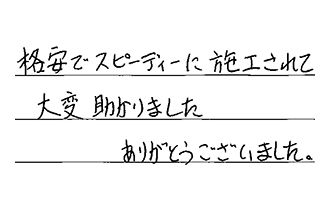 格安でスピーディーに施工されて
大変助かりました
ありがとうございました。